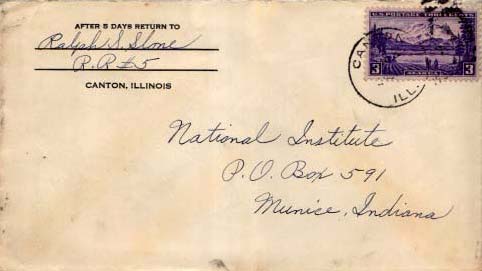 AFTER 5 DAYS RETURN TO
Ralph S. Slone
R.R #5
CANTON, ILLINOIS
U.S. POSTAGE THREE CENTS
3 3
CANTON
ILL.
National Institute
P.O. Box 591
Munice, Indiana